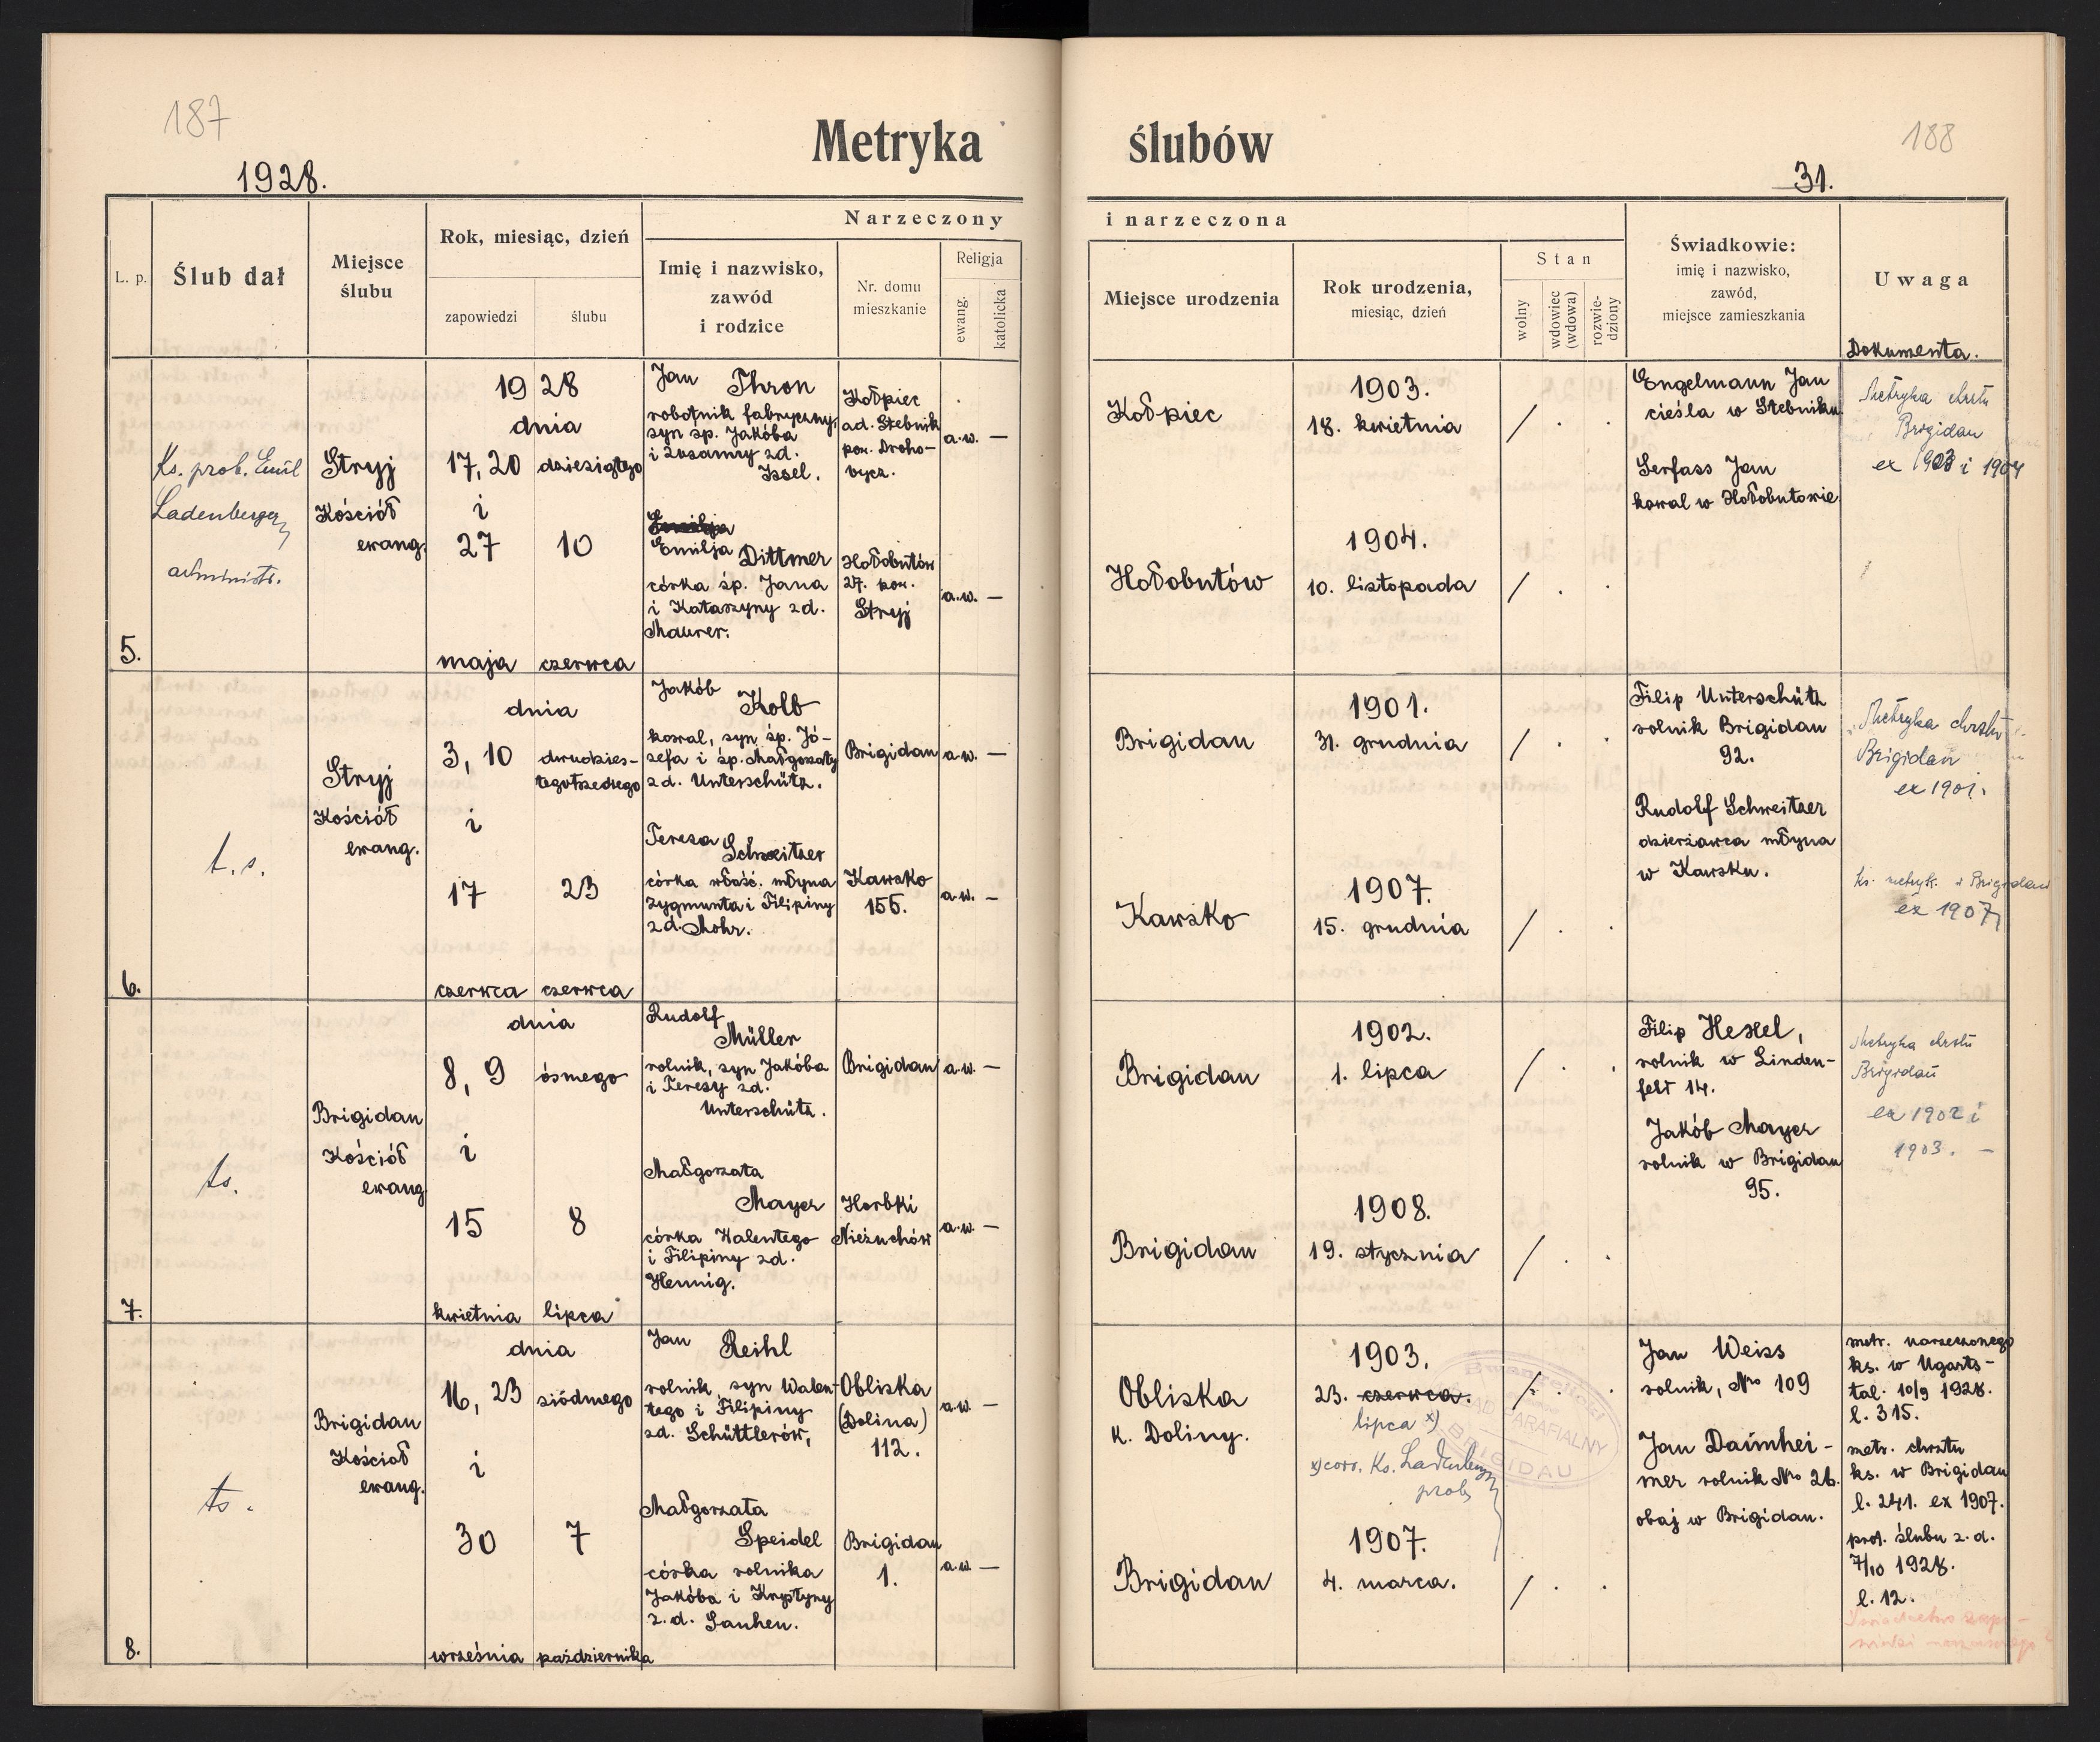 187
188
Metryka ślubów
1928.
31.
L. p.
Ślub dał
Miejsce
ślubu
Rok, miesiąc, dzień
zapowiedzi
ślubu
Narzeczony
Imię i nazwisko,
zawód
i rodzice
Nr. domu
mieszkanie
Religja
ewang.
katolicka
i narzeczona
Miejsce urodzenia
Rok urodzenia,
miesiąc, dzień
Stan
wolny
wdowiec
(wdowa)
rozwie-
dziony
Świadkowie:
imię i nazwisko,
zawód,
miejsce zamieszkania
Uwaga
Dokumenta.
5.
Ks. prob. Emil
Ladenberger
administr.
Stryj
Kościół
ewang.
1928
dnia
17, 20
i
27
maja
dziesiątego
10
czerwca
Jan Thron
robotnik fabryczny,
syn śp. Jakóba
i Zuzanny zd.
Issel.
Kołpiec
ad. Stebnik
pow. Droho-
bycz.
a.w. —
Emilja Dittmer
córka śp. Jana
i Katarzyny zd.
Maurer.
Hołobutów
27. pow.
Stryj
a.w. —
Kołpiec
1903.
18. kwietnia
/ . .
Hołobutów
1904.
10. listopada
/ . .
Engelmann Jan
cieśla w Stebniku
Serfass Jan
kowal w Hołobutowie
Metryka chrztu
Brigidau
ex 1903 i 1904
6.
t.s.
Stryj
Kościół
ewang.
dnia
3, 10
i
17
czerwca
dwudzies-
tegotrzeciego
23
czerwca
Jakób Kolb
kowal, syn śp. Jó-
zefa i śp. Małgorzaty
zd. Unterschütz.
Brigidau
a.w. —
Teresa
Schweitzer
córka właść. młyna
Zygmunta i Filipiny
zd. Mohr.
Kawsko
155.
a.w. —
Brigidau
1901.
31. grudnia
/ . .
Kawsko
1907.
15. grudnia
/ . .
Filip Unterschütz
rolnik Brigidau
92.
Rudolf Schweitzer
dzierżawca młyna
w Kawsku.
Metryka chrztu
Brigidau
ex 1901.
ks. metryk. w Brigidau
ex 1907
7.
ts.
Brigidau
Kościół
ewang
dnia
8, 9
i
15
kwietnia
ósmego
8
lipca
Rudolf
Müller
rolnik, syn Jakóba
i Teresy zd.
Unterschütz.
Brigidau
a.w. —
Małgorzata
Mayer
córka Walentego
i Filipiny zd.
Hennig.
Horbki
Nieżuchów
a.w. —
Brigidau
1902.
1. lipca
/ . .
Brigidau
1908.
19. stycznia
/ . .
Filip Hexel,
rolnik w Linden-
feld 14.
Jakób Mayer
rolnik w Brigidau
95.
Metryka chrztu
Brigidau
ex 1902 i
1903. —
8.
ts.
Brigidau
Kościoł
ewang.
dnia
16, 23
i
30
września
siódmego
7
października
Jan Reihl
rolnik, syn Walen-
tego i Filipiny
zd. Schüttlerów,
Obliska
(Dolina)
112.
a.w. —
Małgorzata
Speidel
córka rolnika
Jakóba i Krystyny
z.d. Sauhen.
Brigidau
1.
a.w. —
Obliska
k. Doliny.
1903.
23. czerwca.
lipca x)
x) corr. Ks. Ladenberger
prob.
PARAFIALNY
BRIGIDAU
/ . .
Brigidau
1907.
4. marca.
/ . .
Jan Weiss
rolnik, No 109
Jan Daimhei-
mer rolnik No 26.
obaj w Brigidau.
metr. narzeczonego
ks. w Ugarts-
tal. 10/9 1928.
l. 315.
metr. chrztu
ks. w Brigidau
l. 241. ex 1907.
prot. ślubu z. d.
7/10 1928.
l. 12.